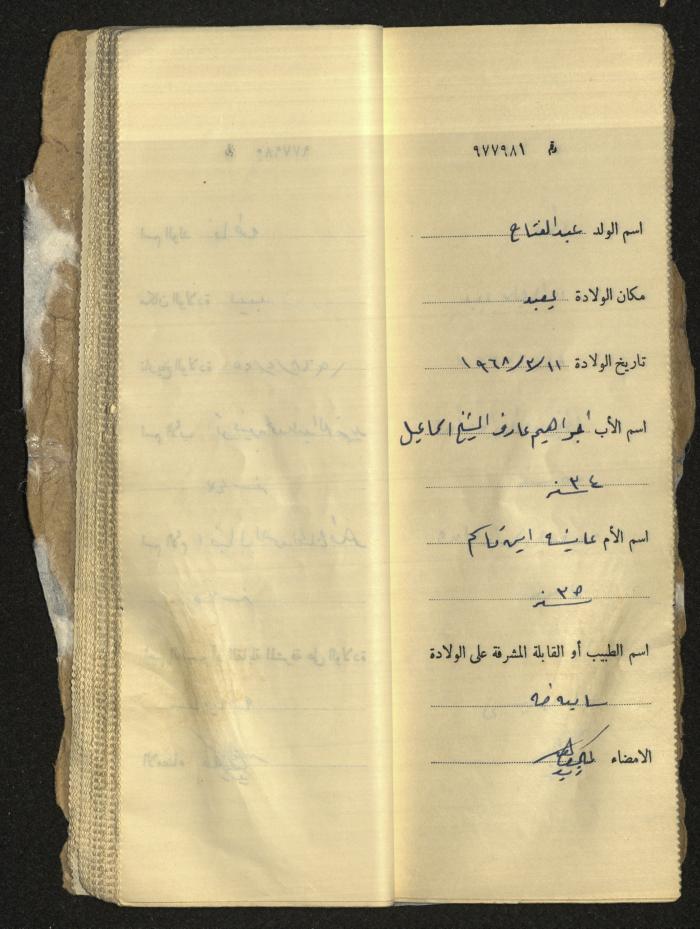 رقم ٩٧٧٩٨١
اسم الولد عبد الفتاح
مكان الولادة يعبد
تاريخ الولادة ١١/٣/١٩٦٨
اسم الأب ابراهيم عارف الشيخ اسماعيل
٣٤ سنه
اسم الأم عايشه امين قاسم
٣٥ سنه
اسم الطبيب أو القابلة المشرفة على الولادة
الامضاء